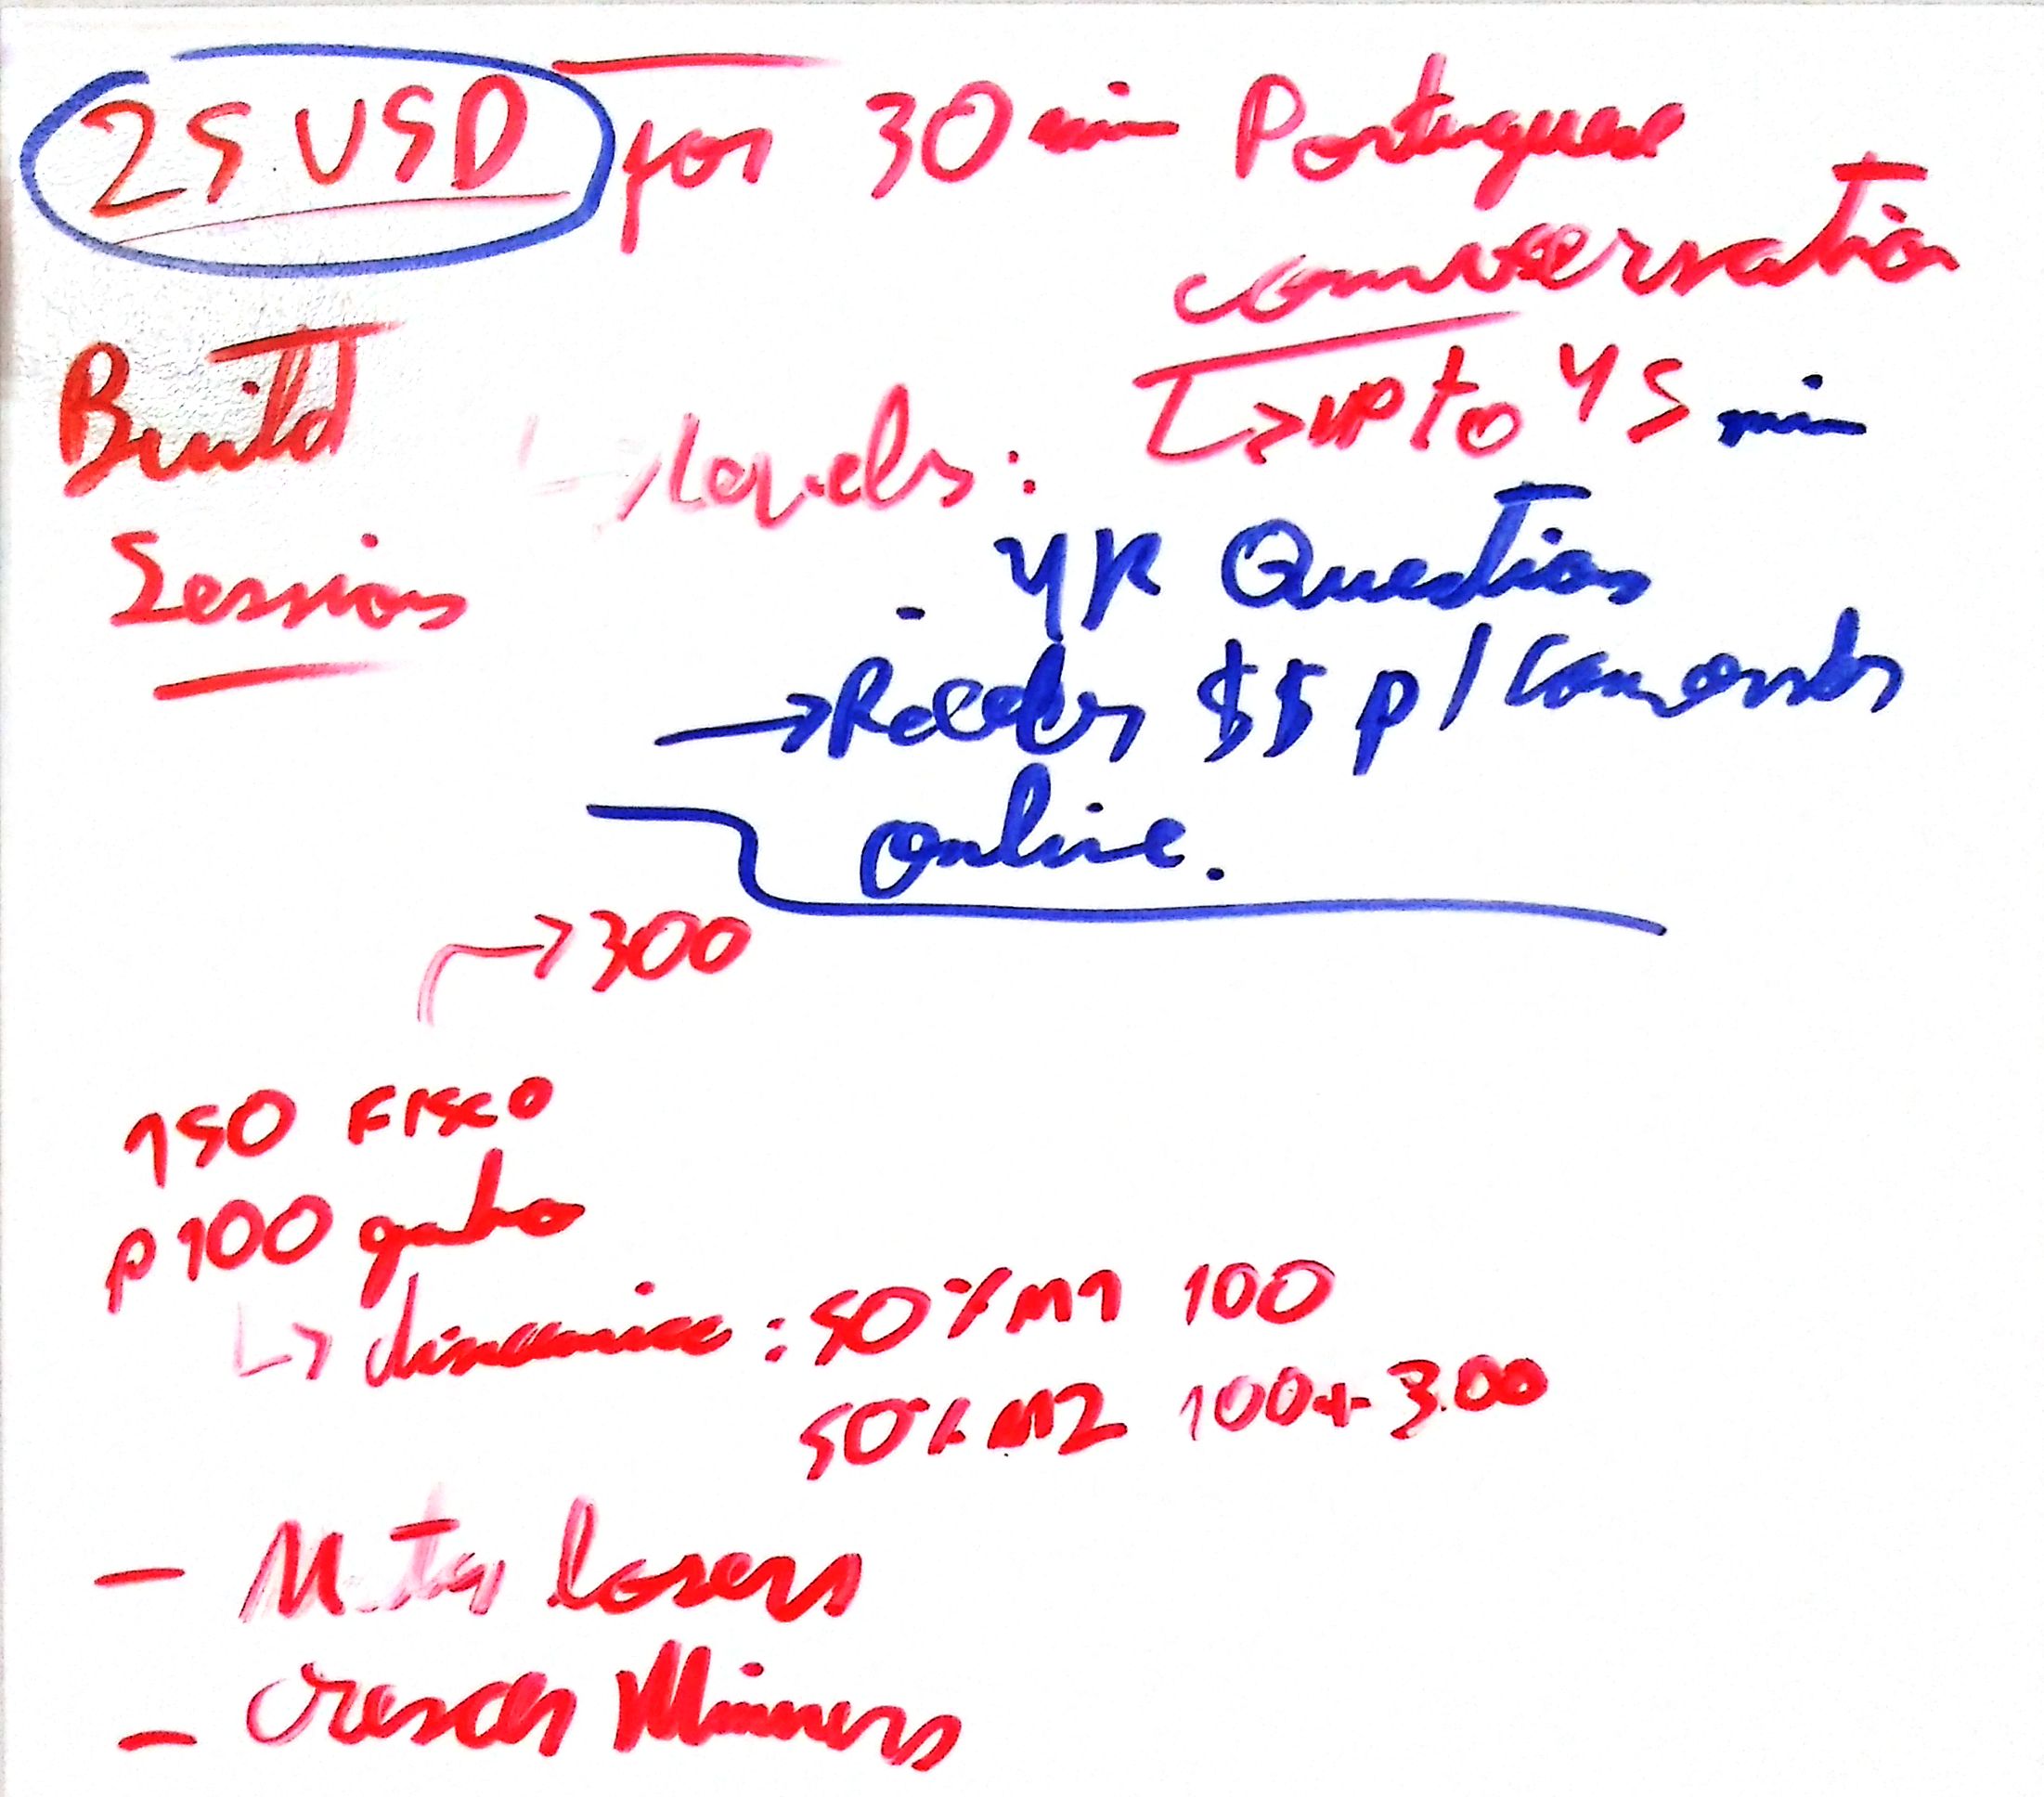 25 USD for 30 min Portuguese
conversation
↳ up to 45 min
Build
Session
→ levels:
- YR Question
→ Receber $$ p/ conversar
online.
→ 300
150 Fisco
p 100 ganho
↳ dinamica: 50% M1 100
50% M2 100 + 3.00
- Matar losers
- Crescer Winners